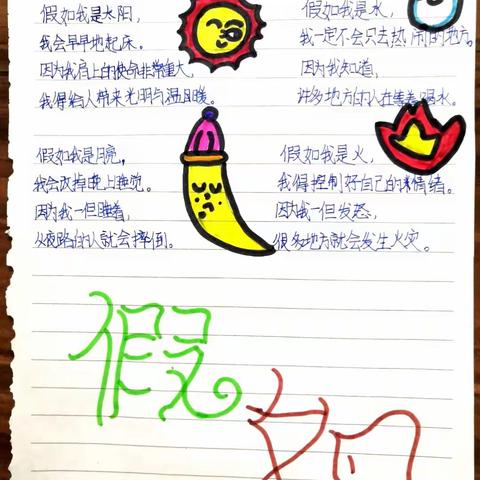 假如我是太阳，
我会早早地起床。
因为我肩上的使命非常重大，
我得给人带来光明与温且暖。
假如我是水，
我一定不会只去热闹的地方。
因为我知道，
许多地方的人在等着喝水。
假如我是月亮，
我会改掉晚上睡觉。
因为我一但睡着，
走夜路的人就会摔倒。
假如我是火，
我得控制好自己的情绪。
因为我一但发怒，
很多地方就会发生火灾。
假如